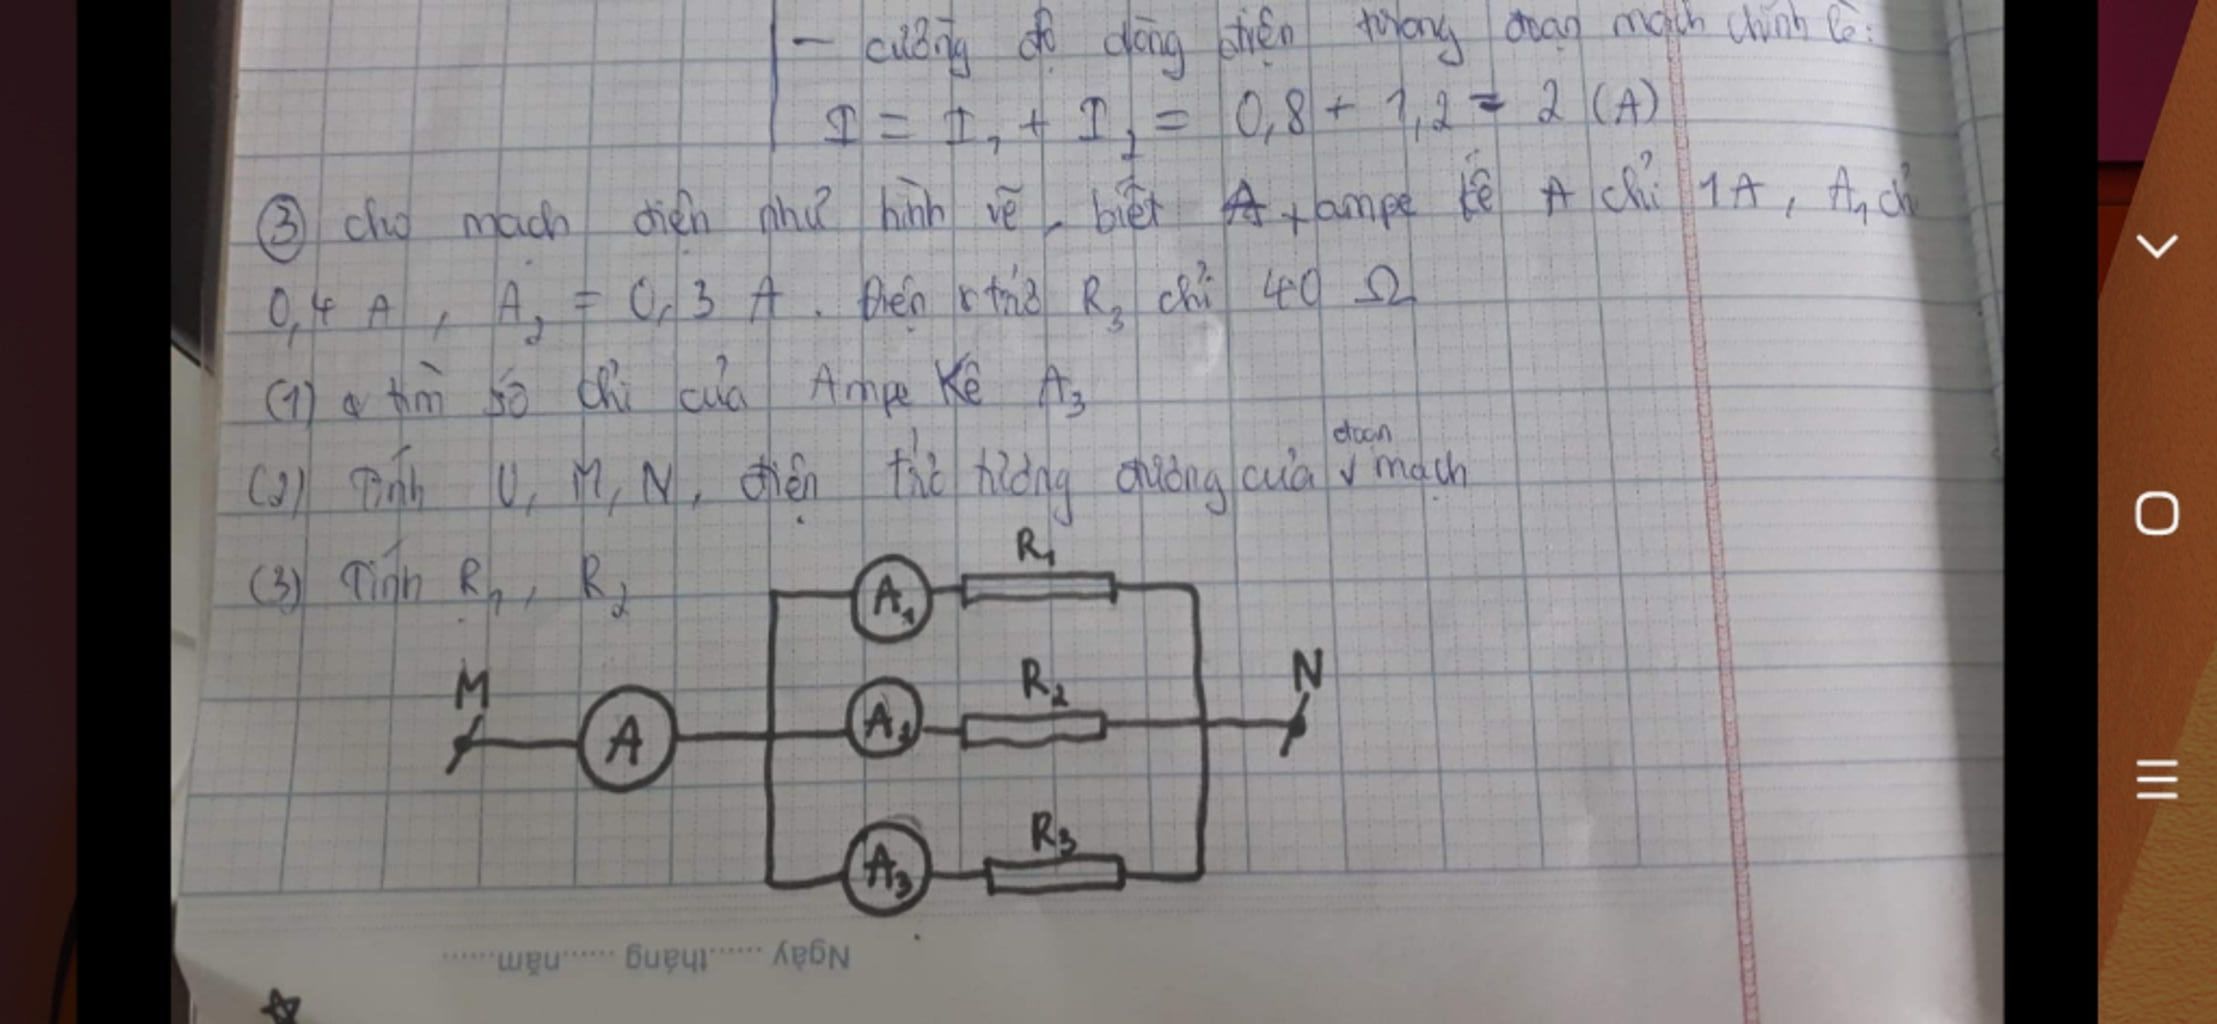 - cường độ dòng điện trong đoạn mạch chính là:
I = I₁ + I₂ = 0,8 + 1,2 = 2 (A)
③ cho mạch điện như hình vẽ, biết ampe kế A chỉ 1A, A₁ chỉ
0,4 A, A₂ = 0,3 A. Điện trở R₃ chỉ 40 Ω
(1) tìm số chỉ của Ampe kế A₃
(2) Tính U, M, N, điện trở tương đương của đoạn mạch
(3) Tính R₁, R₂
R₁
A₁
M
R₂
N
A
A₂
R₃
A₃
Ngày ......tháng ......năm......